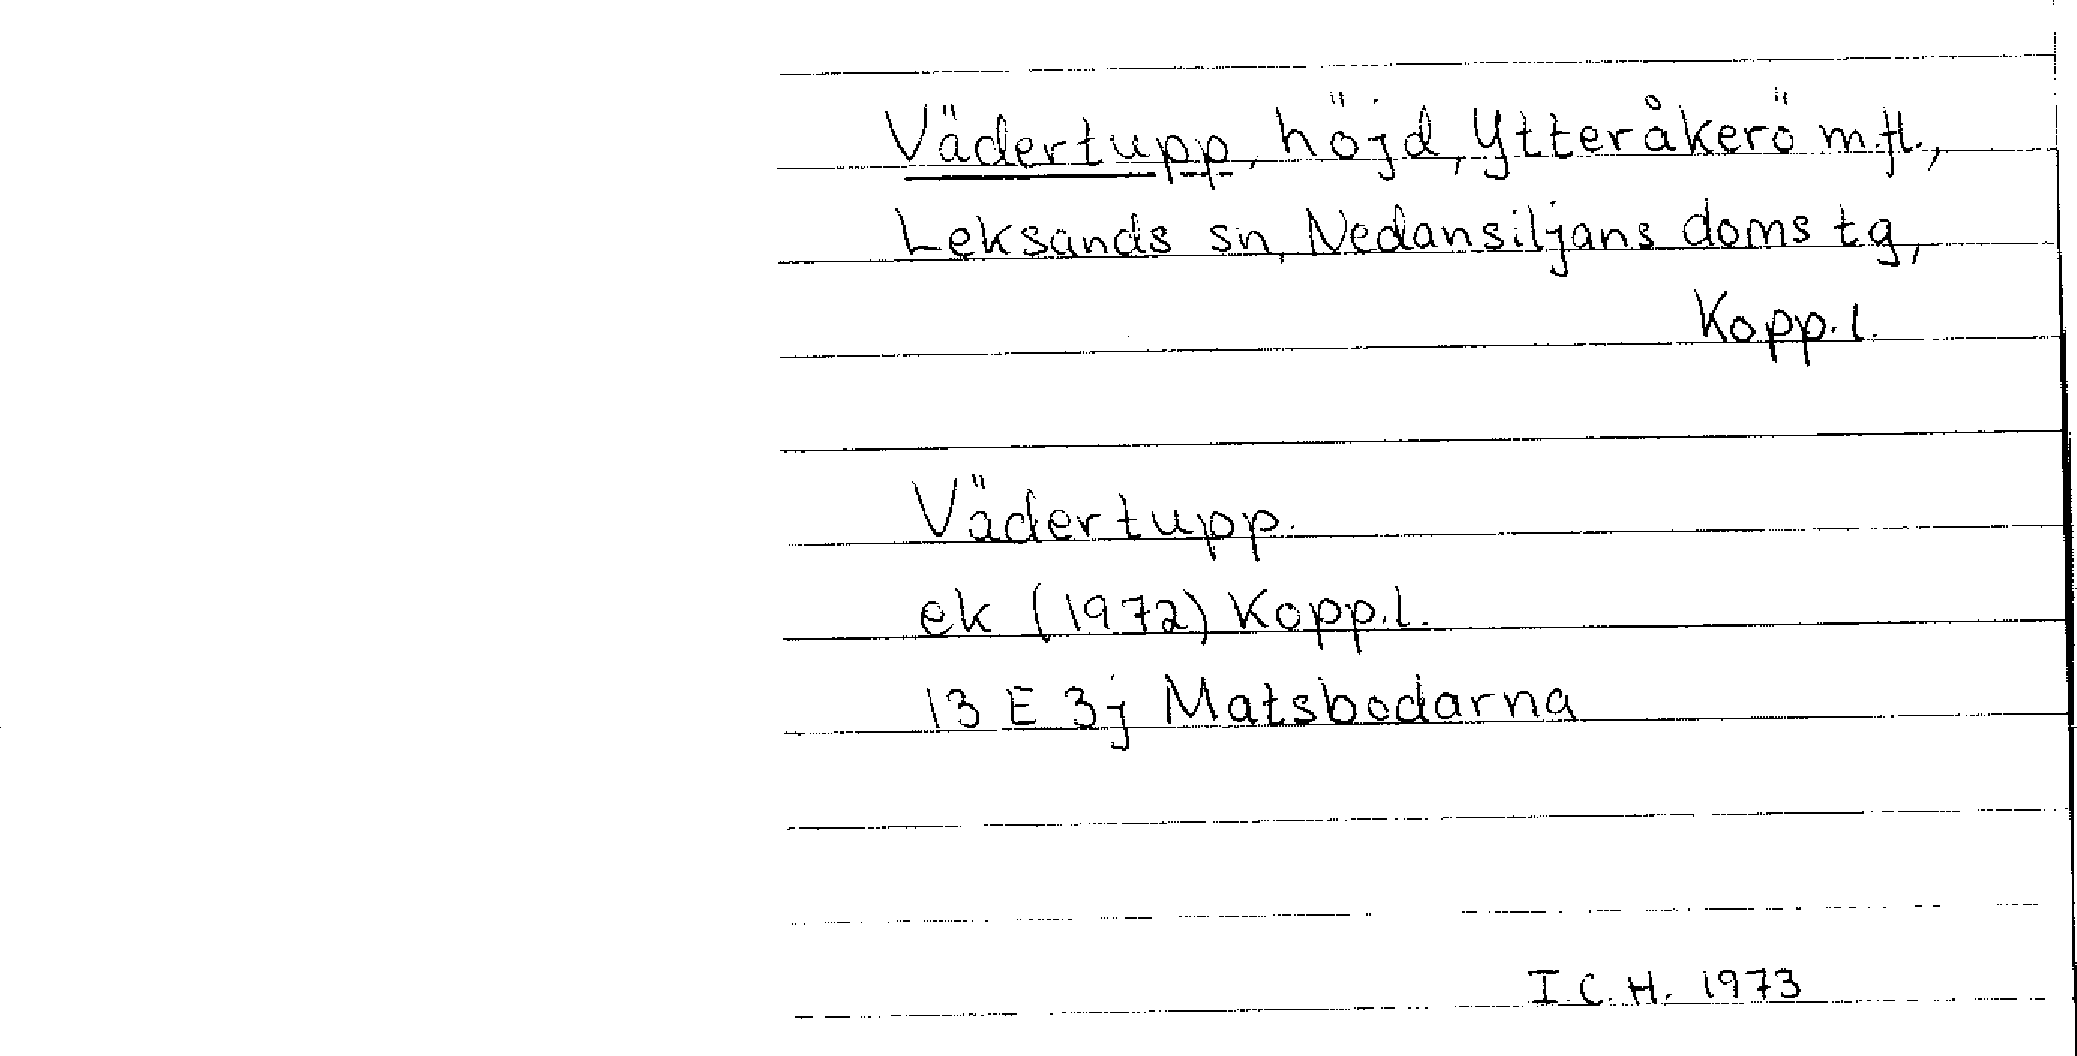 Vädertupp, höjd, Ytteråkerö m.fl.,
Leksands sn, Nedansiljans doms tg,
Kopp.l.
Vädertupp.
ek (1972) Kopp.l.
13 E 3j Matsbodarna
I.C.H. 1973